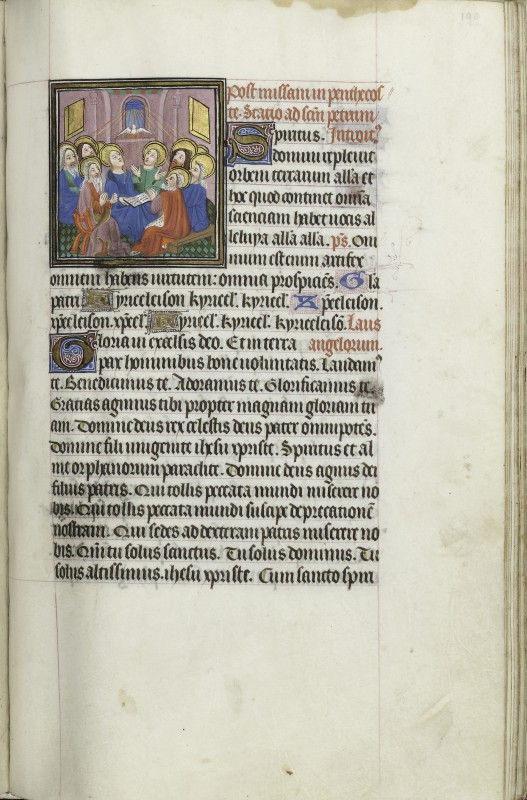 190
Post missam in penthecos
te. Stacio ad scm petrum
Spiritus. Introit9
domini repleuit
orbem terrarum alla et
hoc quod continet omia
scienciam habet uocis al
leluya alla alla. ps. Om
nium est enim artifex
omnem habens uirtutem: omnia prospiciēs. Gla
patri Kyrieeleison kyrieel'. kyrieel'. Xp̄eeleison.
xp̄eeleison. xp̄eel' Kyrieel'. kyrieel'. kyrieeleisō. Laus
Gloria in excelsis deo. Et in terra angelorum.
pax hominibus bone uoluntatis. Laudam9
te. Benedicimus te. Adoramus te. Glorificamus te.
Gratias agimus tibi propter magnam gloriam tu
am. Domine deus rex celestis deus pater omnipotēs.
Domine fili unigenite ihesu xpriste. Spiritus et al
me orphanorum paraclite. Domine deus agnus dei
filius patris. Qui tollis peccata mundi miserere no
bis. Qui tollis peccata mundi suscipe deprecationē
nostram. Qui sedes ad dexteram patris miserere no
bis. Qm̄ tu solus sanctus. Tu solus dominus. Tu
solus altissimus. ihesu xpriste. Cum sancto spiri